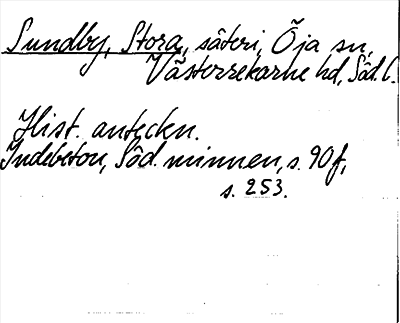 Sundby, Stora, säteri, Öja sn,
Västerrekarne hd, Söd. l.
Hist. anteckn.
Indebetou, Söd. minnen, s. 90 f,
s. 253.